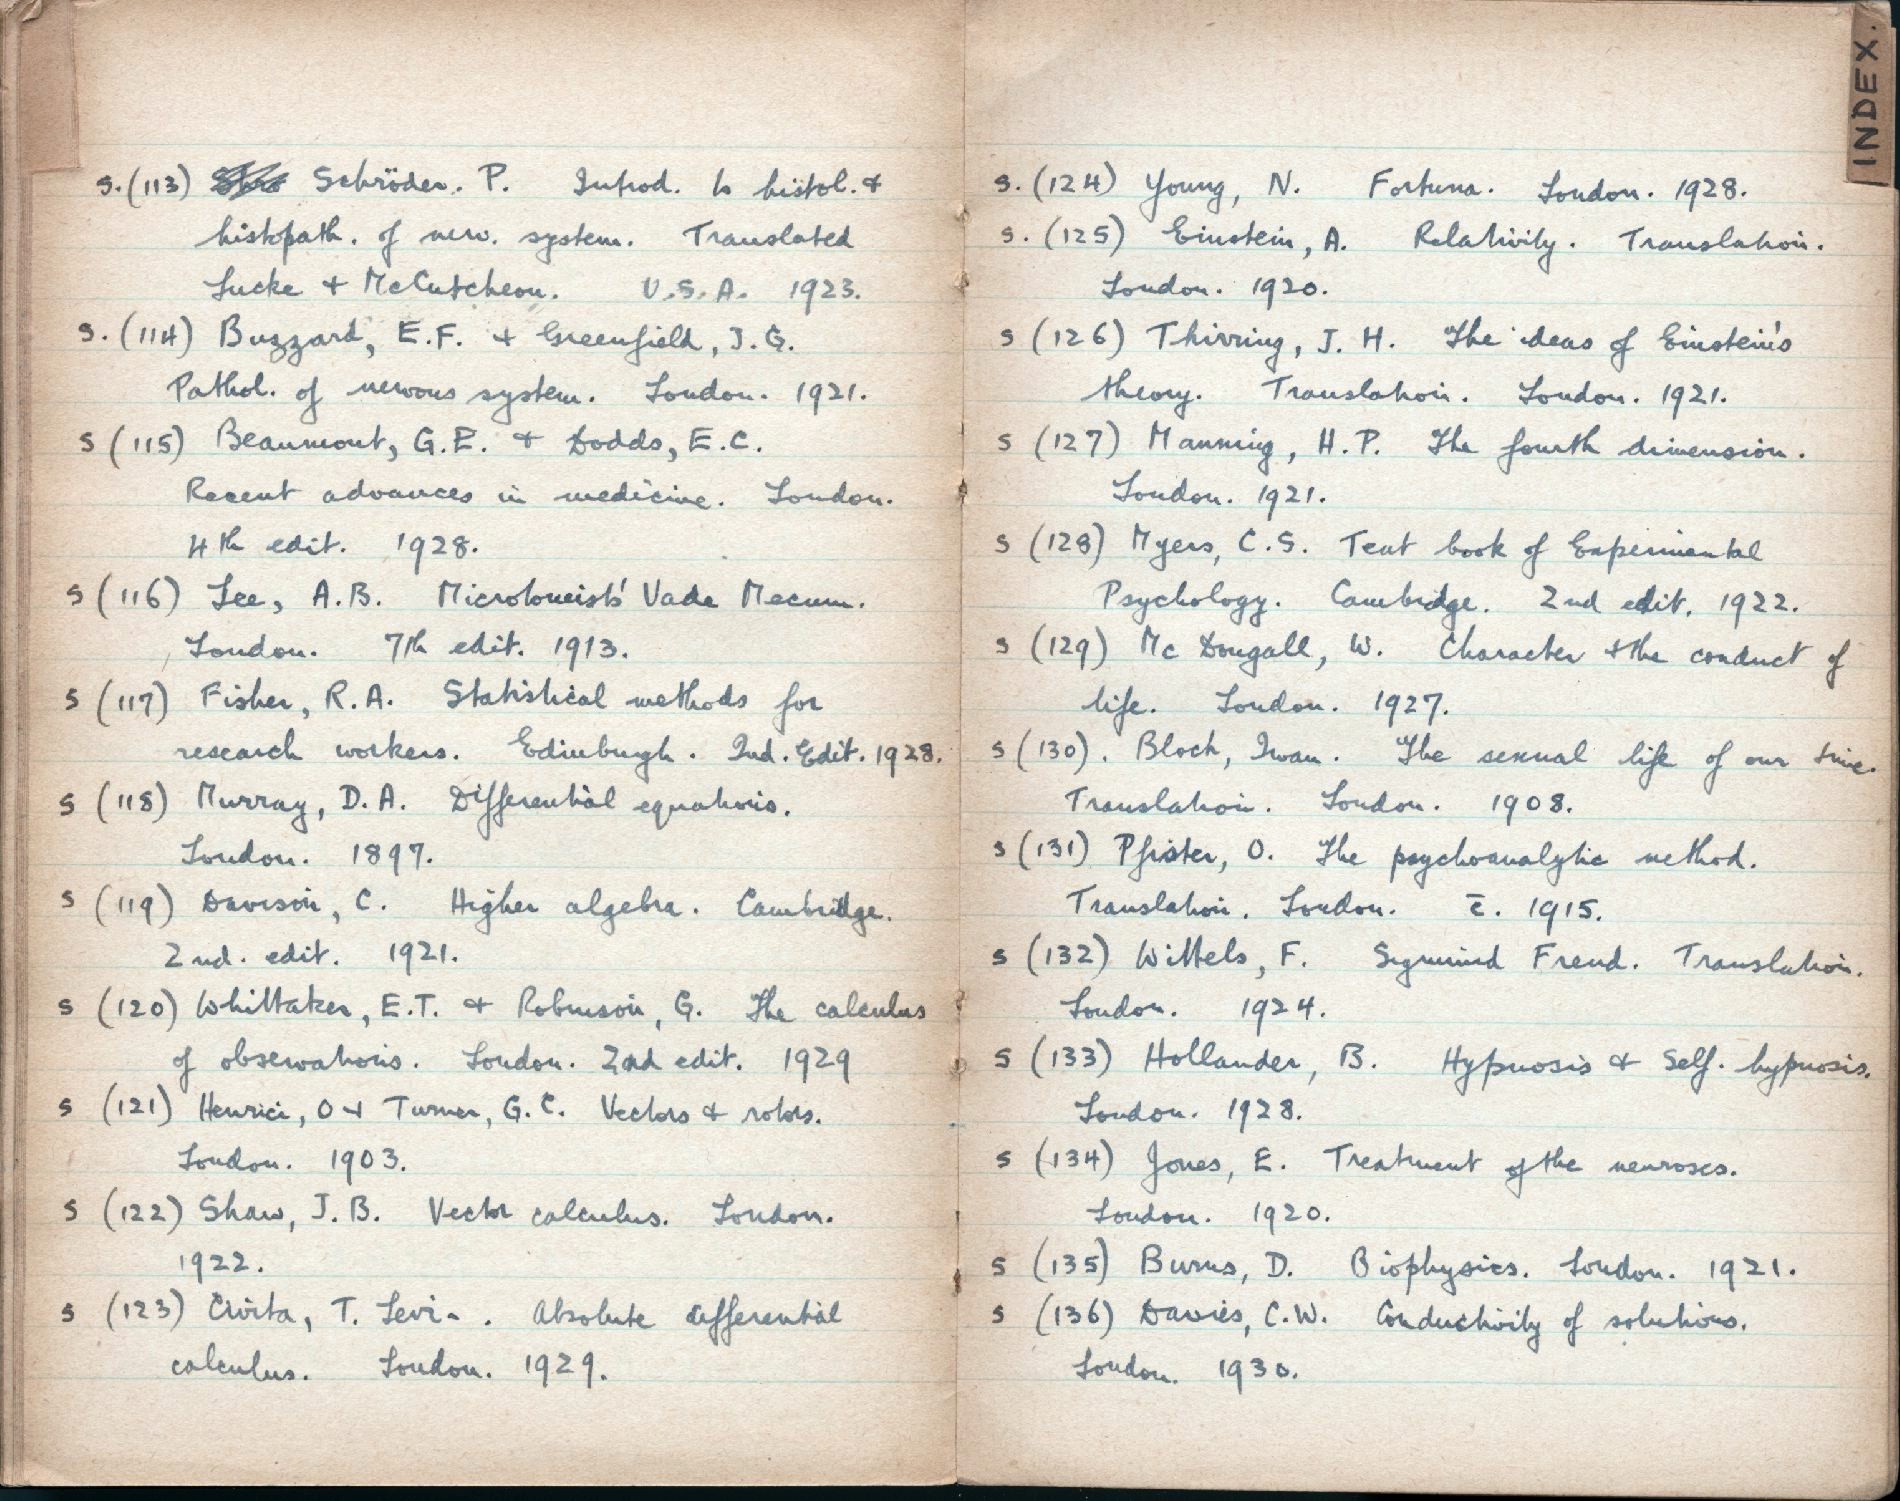 s. (113) Schröder. P. Introd. to histol. &
histopath. of nerv. system. Translated
Lucke + McCutcheon. U.S.A. 1923.
s. (114) Buzzard, E.F. + Greenfield, J.G.
Pathol. of nervous system. London. 1921.
s (115) Beaumont, G.E. + Dodds, E.C.
Recent advances in medicine. London.
4th edit. 1928.
s (116) Lee, A.B. Microtomists' Vade Mecum.
London. 7th edit. 1913.
s (117) Fisher, R.A. Statistical methods for
research workers. Edinburgh. 2nd. Edit. 1928.
s (118) Murray, D.A. Differential equations.
London. 1897.
s (119) Davison, C. Higher algebra. Cambridge.
2nd. edit. 1921.
s (120) Whittaker, E.T. + Robinson, G. The calculus
of observations. London. 2nd edit. 1929
s (121) Henrici, O + Turner, G.C. Vectors & rotors.
London. 1903.
s (122) Shaw, J.B. Vector calculus. London.
1922.
s (123) Civita, T. Levi-. Absolute differential
calculus. London. 1929.
INDEX.
s. (124) Young, N. Fortuna. London. 1928.
s. (125) Einstein, A. Relativity. Translation.
London. 1920.
s (126) Thirring, J.H. The ideas of Einstein's
theory. Translation. London. 1921.
s (127) Manning, H.P. The fourth dimension.
London. 1921.
s (128) Myers, C.S. Text book of Experimental
Psychology. Cambridge. 2nd edit. 1922.
s (129) Mc Dougall, W. Character + the conduct of
life. London. 1927.
s (130). Bloch, Iwan. The sexual life of our time.
Translation. London. 1908.
s (131) Pfister, O. The psychoanalytic method.
Translation. London. c̄. 1915.
s (132) Wittels, F. Sigmund Freud. Translation.
London. 1924.
s (133) Hollander, B. Hypnosis & Self-hypnosis.
London. 1928.
s (134) Jones, E. Treatment of the neuroses.
London. 1920.
s (135) Burns, D. Biophysics. London. 1921.
s (136) Davies, C.W. Conductivity of solutions.
London. 1930.